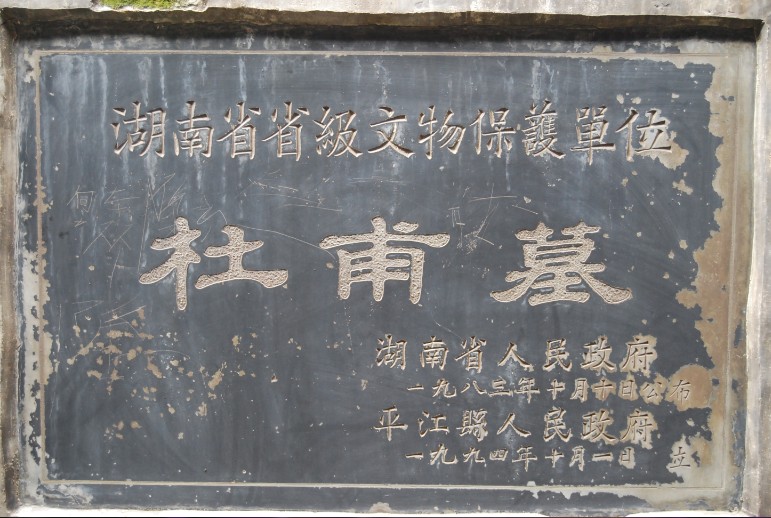 湖南省省級文物保護單位
杜甫墓
湖南省人民政府
一九八三年十月十日公布
平江縣人民政府
一九九四年十月一日 立